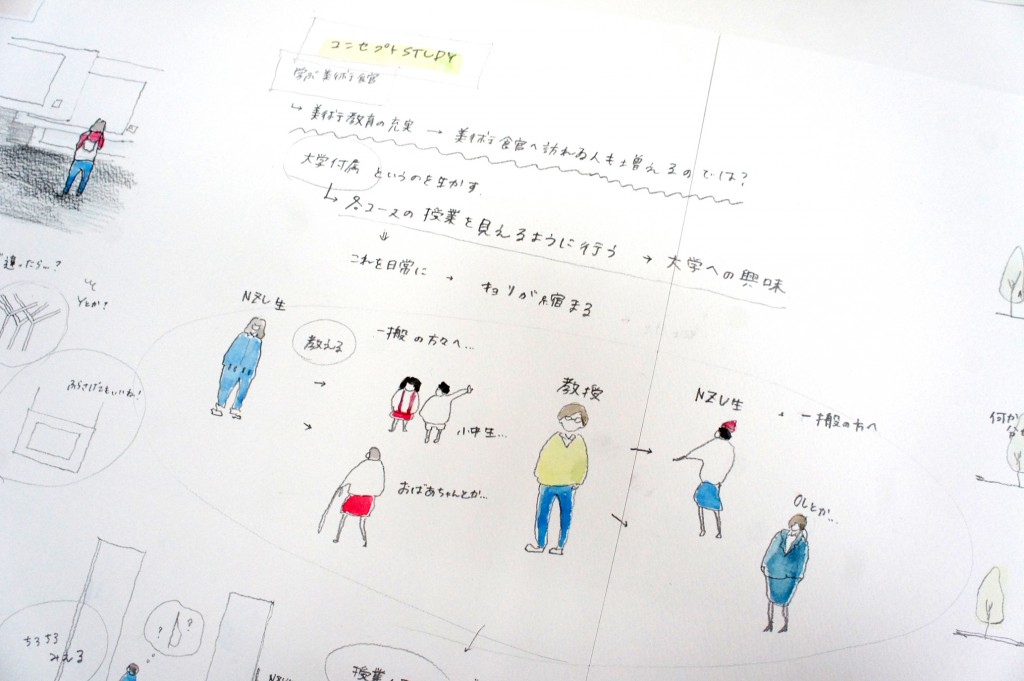 コンセプトSTUDY
学ぶ美術食官
↳ 美術教育の充実 → 美術食官へ訪れる人も増えるのでは?
大学付属 というのを生かす.
↳ 各コースの授業を見えるように行う → 大学への興味
⇓
これを日常に → キョリが縮まる
違ったら…?
Yとか?
NZU生
教える
一搬の方々へ…
小中生…
おばあちゃんとか…
教授
NZU生 + 一搬の方へ
OLとか…
何か
ちらちら
みえる
? ?
授業